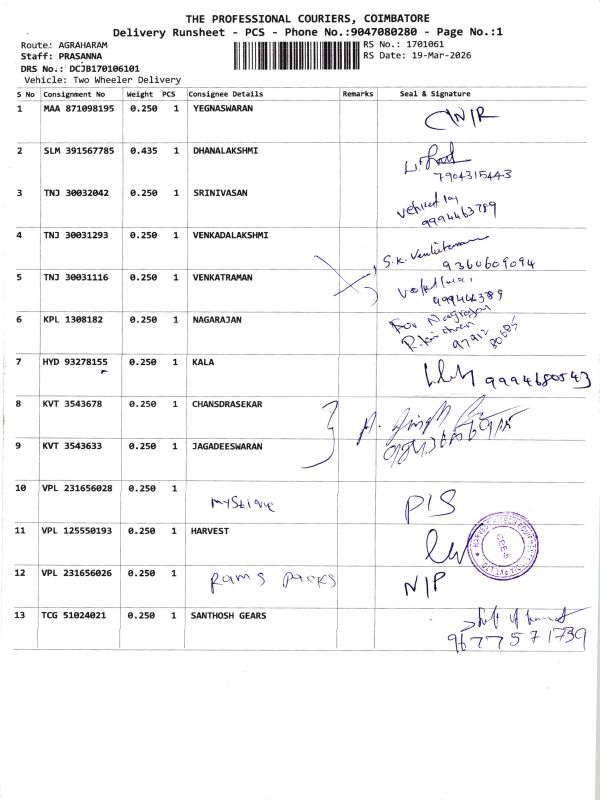 THE PROFESSIONAL COURIERS, COIMBATORE
Delivery Runsheet - PCS - Phone No.:9047080280 - Page No.:1
Route: AGRAHARAM RS No.: 1701061
Staff: PRASANNA RS Date: 19-Mar-2026
DRS No.: DCJB170106101
Vehicle: Two Wheeler Delivery
S No Consignment No Weight PCS Consignee Details Remarks Seal & Signature
1 MAA 871098195 0.250 1 YEGNASWARAN
2 SLM 391567785 0.435 1 DHANALAKSHMI
7904315443
3 TNJ 30032042 0.250 1 SRINIVASAN
9994463789
4 TNJ 30031293 0.250 1 VENKADALAKSHMI
S.K. 9360609094
5 TNJ 30031116 0.250 1 VENKATRAMAN
6 KPL 1308182 0.250 1 NAGARAJAN
For Nagrajan
97912 80685
7 HYD 93278155 0.250 1 KALA
9994680543
8 KVT 3543678 0.250 1 CHANSDRASEKAR
9 KVT 3543633 0.250 1 JAGADEESWARAN
10 VPL 231656028 0.250 1
mystique P/S
11 VPL 125550193 0.250 1 HARVEST
CBE-6
12 VPL 231656026 0.250 1
Rams packs N/P
13 TCG 51024021 0.250 1 SANTHOSH GEARS
9677571739